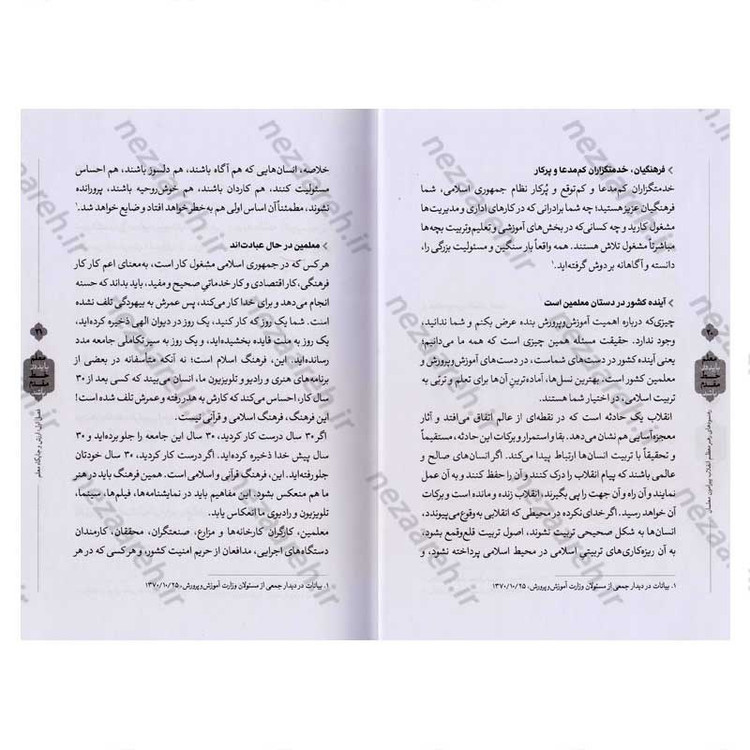 فرهنگیان، خدمتگزاران کم‌مدعا و پرکار
خدمتگزاران کم‌مدعا و کم‌توقع و پُرکار نظام جمهوری اسلامی، شما
فرهنگیان عزیز هستید؛ چه شما برادرانی که در کارهای اداری و مدیریت‌ها
مشغول کارید و چه کسانی‌که در بخش‌های آموزشی و تعلیم‌وتربیت بچه‌ها
مباشرتاً مشغول تلاش هستند. همه واقعاً بار سنگین و مسئولیت بزرگی را،
دانسته و آگاهانه بر دوش گرفته‌اید.۱
آینده کشور در دستان معلمین است
چیزی‌که درباره اهمیت آموزش‌وپرورش بنده عرض بکنم و شما ندانید،
وجود ندارد. حقیقت مسئله همین چیزی است که همه ما می‌دانیم؛
یعنی آینده کشور در دست‌های شماست، در دست‌های آموزش‌وپرورش و
معلمین کشور است. بهترین نسل‌ها، آماده‌ترینِ آن‌ها برای تعلم و تربّی به
تربیت اسلامی، در اختیار شما هستند.
انقلاب یک حادثه است که در نقطه‌ای از عالم اتفاق می‌افتد و آثار
معجزه‌آسایی هم نشان می‌دهد. بقا و استمرار و برکات این حادثه، مستقیماً
و تحقیقاً با تربیت انسان‌ها ارتباط پیدا می‌کند. اگر انسان‌های صالح و
عالمی باشند که پیام انقلاب را درک کنند و آن را حفظ کنند و به آن عمل
نمایند و آن راه و آن جهت را پی بگیرند، انقلاب زنده و مانده است و برکات
آن خواهد رسید. اگر خدای‌نکرده در محیطی که انقلابی به‌وقوع می‌پیوندد،
انسان‌ها به شکل صحیحی تربیت نشوند، اصول تربیت قلع‌وقمع بشود،
به آن ریزه‌کاری‌های تربیتیِ اسلامی در محیط اسلامی پرداخته نشود، و
۱. بیانات در دیدار جمعی از مسئولان وزارت آموزش‌وپرورش، ۱۳۷۰/۱۰/۲۵
۲۰
معلم
خط
مقدم
رهنمودهای رهبر معظم انقلاب پیرامون معلمان
خلاصه، انسان‌هایی که هم آگاه باشند، هم دلسوز باشند، هم احساس
مسئولیت کنند، هم کاردان باشند، هم خوش‌روحیه باشند، پرورانده
نشوند، مطمئناً آن اساس اولی هم به‌خطر خواهد افتاد و ضایع خواهد شد.۱
معلمین در حال عبادت‌اند
هرکس که در جمهوری اسلامی مشغول کار است، به‌معنای اعم کار کار
فرهنگی، کار اقتصادی و کار خدماتیِ صحیح و مفید، باید بداند که حسنه
انجام می‌دهد و برای خدا کار می‌کند، پس عمرش به بیهودگی تلف نشده
است. شما یک روز که کار کنید، یک روز در دیوان الهی ذخیره کرده‌اید،
یک روز به ملت فایده بخشیده‌اید، و یک روز به سیر تکاملی جامعه مدد
رسانده‌اید. این، فرهنگ اسلام است؛ نه آنکه متأسفانه در بعضی از
برنامه‌های هنری و رادیو و تلویزیون ما، انسان می‌بیند که کسی بعد از ۳۰
سال کار، احساس می‌کند که کارش به هدر رفته و عمرش تلف شده است!
این فرهنگ، فرهنگ اسلامی و قرآنی نیست.
اگر ۳۰ سال درست کار کردید، ۳۰ سال این جامعه را جلو برده‌اید و ۳۰
سال پیش خدا ذخیره کرده‌اید. اگر درست کار کردید، ۳۰ سال خودتان
جلو رفته‌اید. این، فرهنگ قرآنی و اسلامی است. همین فرهنگ باید در هنر
ما هم منعکس بشود. این مفاهیم باید در نمایشنامه‌ها، فیلم‌ها، سینما،
تلویزیون و رادیوی ما انعکاس یابد.
معلمین، کارگران کارخانه‌ها و مزارع، صنعتگران، محققان، کارمندان
دستگاه‌های اجرایی، مدافعان از حریم امنیت کشور، و هرکسی که در هر
۱. بیانات در دیدار جمعی از مسئولان وزارت آموزش‌وپرورش، ۱۳۷۰/۱۰/۲۵
۲۱
معلم
خط
مقدم
فصل اول: ارزش و جایگاه معلم
nezaareh.ir